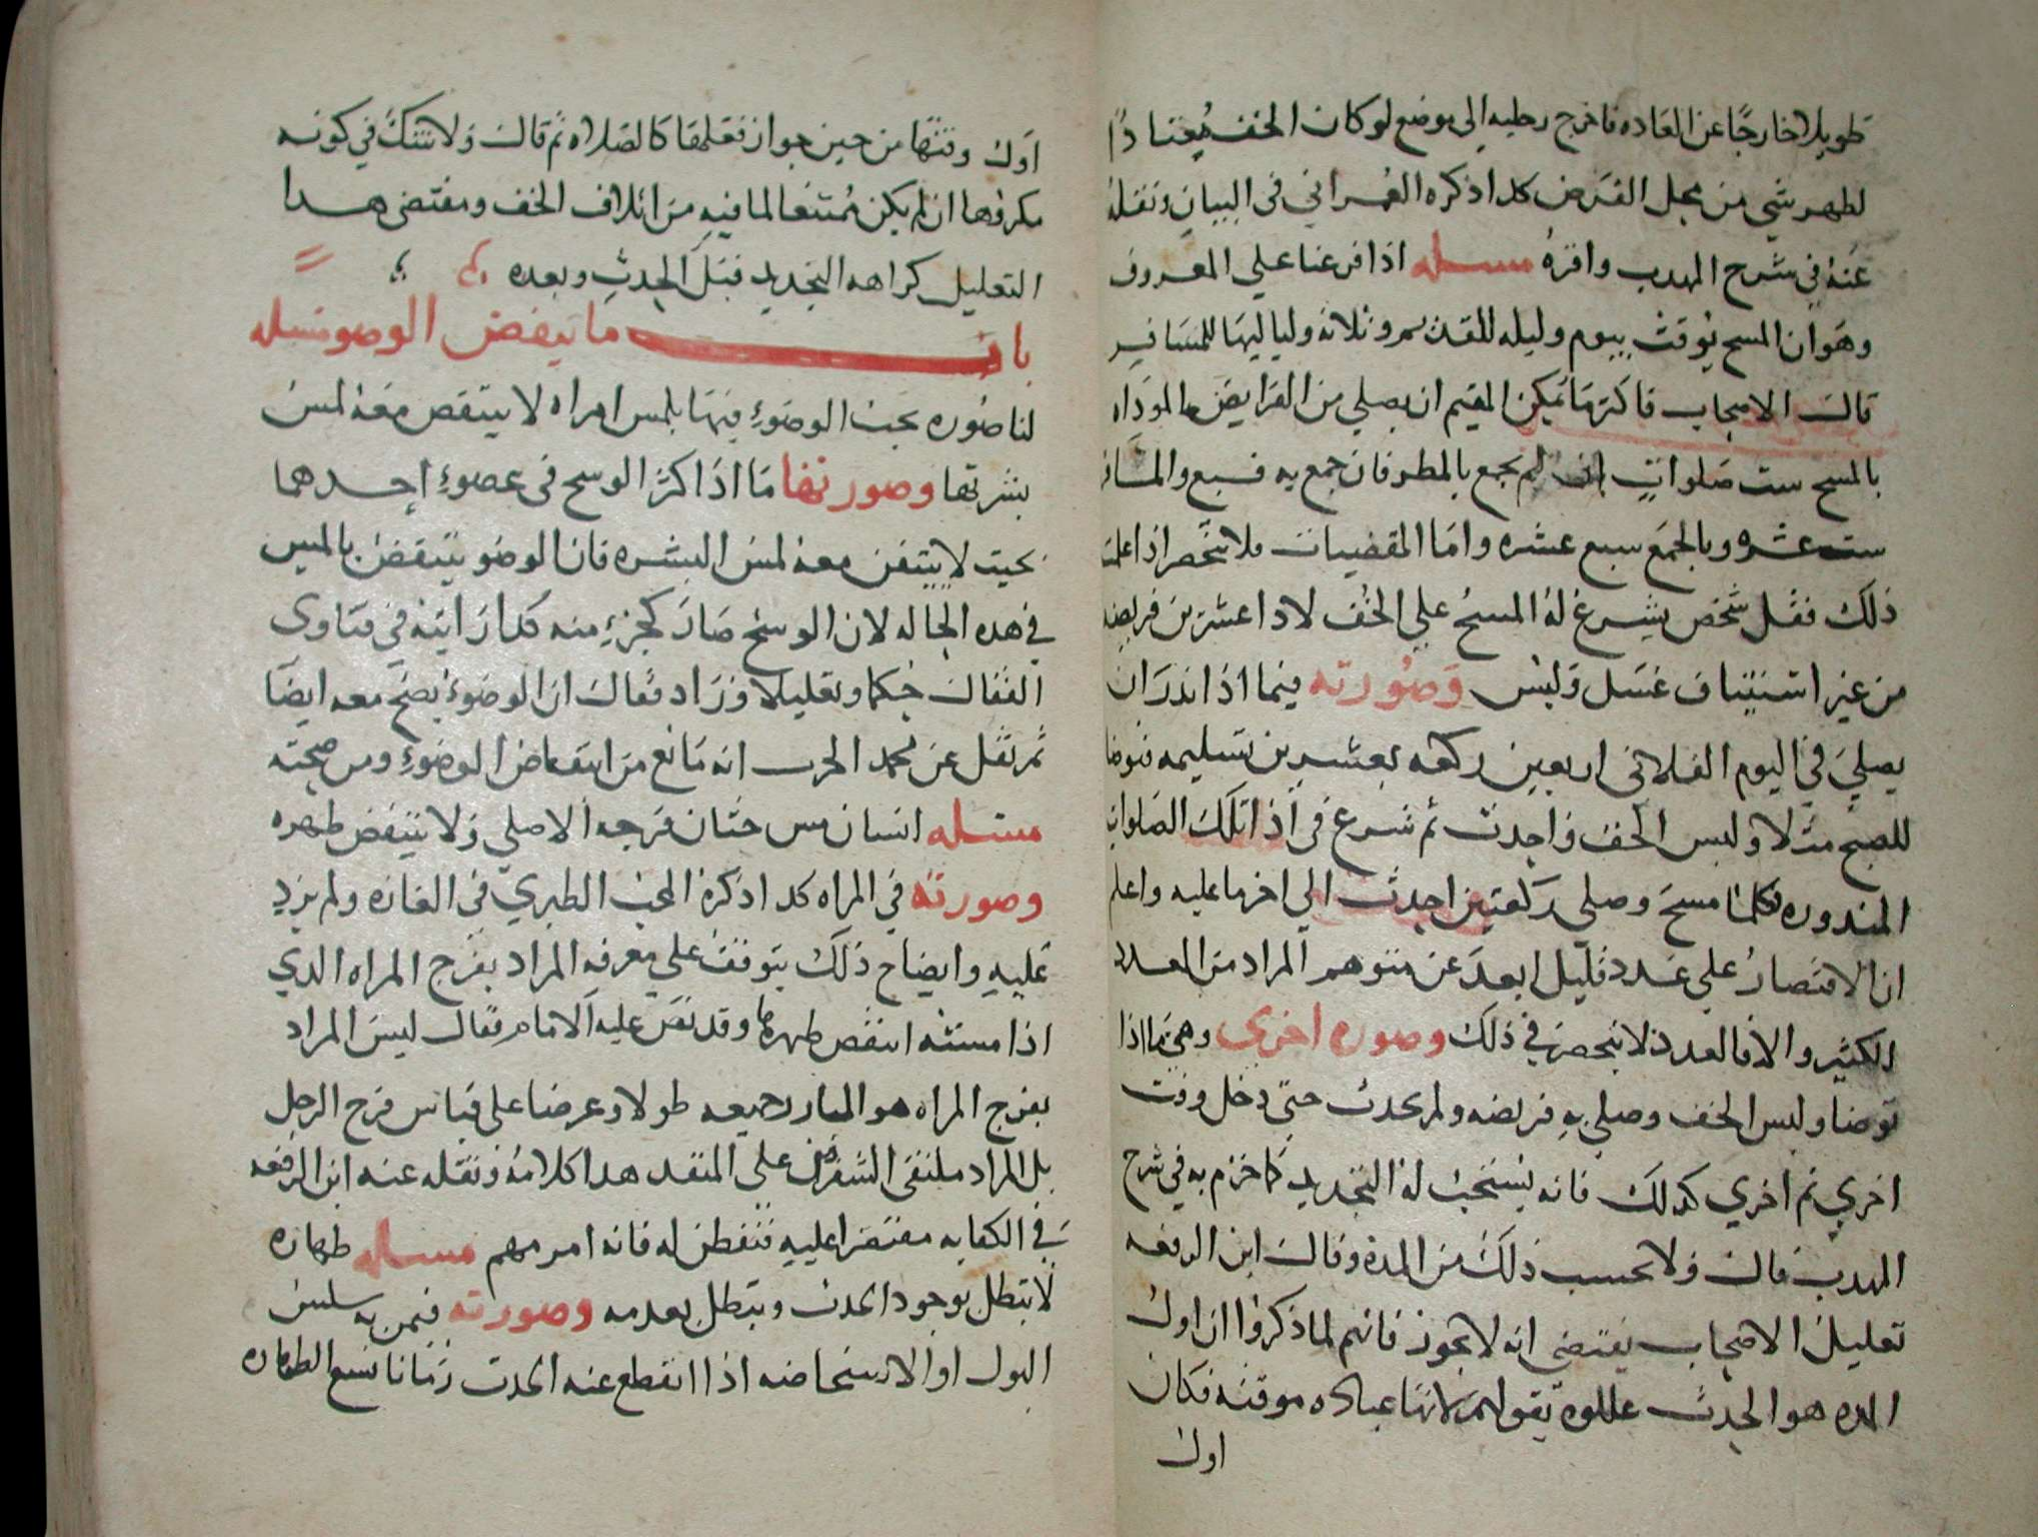 طويلا خارجًا عن العاده فاخرج رجليه الى موضع لو كان الخف مُعتادًا
لظهر شي من محل الفرض كدا ذكره العمراني في البيان ونقله
عنه في شرح المهدب واقره مسله اذا فرعنا علي المعروف
وهو ان المسح يوقت بيوم وليله للمقيم وثلاثه ولياليها للمسافر
قال الاصحاب فاكثر ما يمكن المقيم ان يصلي من الفرايض الموداه
بالمسح ست صلوات ان لم يجمع بالمطر فان جمع به فسبع والمسافر
ست عشره وبالجمع سبع عشره واما المقضيات فلا تنحصر اذا علمت
ذلك فقل شخص يشرع له المسح علي الخف لاداء عشرين فريضه
من غير استيناف غسل ولبس وصورته فيما اذا ندر ان
يصلي في اليوم الفلاني اربعين ركعه بعشرين تسليمه فتوضا
للصبح مثلا ولبس الخف واحدث ثم شرع في اذا تلك الصلوات
المندوره فكلما مسح وصلي ركعتين احدث الي اخر ما عليه واعلم
ان الاقتصار علي عدد قليل ابعد عن متوهم المراد من العدد
الكثير والا فالعدد لا ينحصر في ذلك وصوره اخري وهي ما اذا
توضا ولبس الخف وصلي به فريضه ولم يحدث حتي دخل وقت
اخري ثم اخري كدلك فانه يستحب له التجديد كما جزم به في شرح
المهدب قال ولا يحسب ذلك من المدة وقال ابن الرفعه
تعليل الاصحاب يقتضي انه لا يجوز فانهم لما ذكروا ان اول
المده هو الحدث عللوه بقولهم لانها عباده موقته فكان
اول
اول وقتها من حين جواز فعلها كالصلاه ثم قال ولا شك في كونه
مكروها ان لم يكن ممتنعا لما فيه من اتلاف الخف ومقتضى هدا
التعليل كراهه التجديد قبل الحدث وبعده
باب ما ينقض الوضو مسله
لنا صوره يجب الوضوء فيها بلمس امراه لا ينتقض معه لمس
بشرتها وصورتها ما اذا كثر الوسخ في عضوء احدهما
بحيث لا يتيقن معه لمس البشره فان الوضو ينتقض بالمس
في هده الحاله لان الوسخ صار كجزء منه كدا رايته في فتاوى
القفال حكما وتعليلا وزاد فقال ان الوضوء يصح معه ايضا
ثم نقل عن محمد الحرب انه مانع من انتقاض الوضوء ومن صحته
مسله انسان مس ختان فرجه الاصلي ولا ينتقض طهره
وصورته في المراه كدا ذكره المحب الطبري في الغازه ولم يزد
عليه وايضاح ذلك يتوقف علي معرفه المراد بفرج المراه الدي
اذا مسته انتقض طهرها وقد نص عليه الامام فقال ليس المراد
بفرج المراه هو المبار جميعه طولا وعرضا على قياس فرج الرجل
بل المراد ملتقى الشفرين على المنفد هدا كلامه ونقله عنه ابن الرفعه
في الكفايه مقتصرا عليه فتفطن له فانه امر مهم مساله طهاره
لا تبطل بوجود الحدث وتبطل بعدمه وصورته فيمن به سلس
البول او الاستحاضه اذا انقطع عنه الحدث زمانا تسع الطهاره